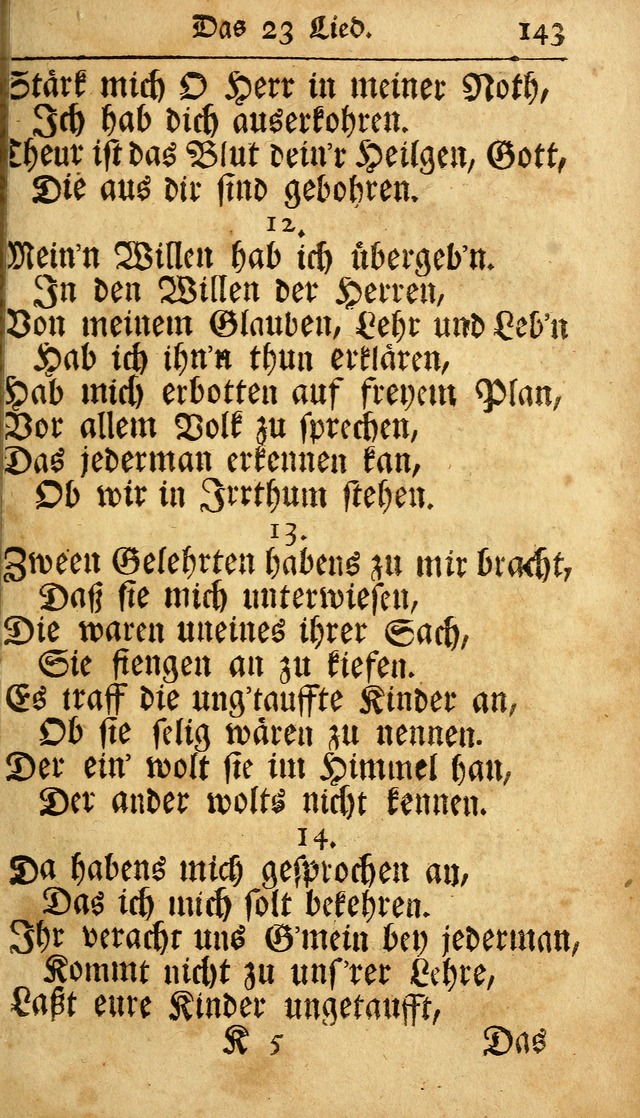 Das 23 Lied. 143
Stärk mich O Herr in meiner Noth,
Ich hab dich auserkohren.
Theur ist das Blut dein'r Heilgen, Gott,
Die aus dir sind gebohren.
12.
Mein'n Willen hab ich übergeb'n.
In den Willen der Herren,
Von meinem Glauben, Lehr und Leb'n
Hab ich ihn'n thun erklären,
Hab mich erbotten auf freyem Plan,
Vor allem Volk zu sprechen,
Das jederman erkennen kan,
Ob wir in Irrthum stehen.
13.
Zween Gelehrten habens zu mir bracht,
Daß sie mich unterwiesen,
Die waren uneines ihrer Sach,
Sie fiengen an zu kiefen.
Es traff die ung'tauffte Kinder an,
Ob sie selig wären zu nennen.
Der ein' wolt sie im Himmel han,
Der ander wolts nicht kennen.
14.
Da habens mich gesprochen an,
Das ich mich solt bekehren.
Ihr veracht uns G'mein bey jederman,
Kommt nicht zu uns'rer Lehre,
Laßt eure Kinder ungetaufft,
K 5 Das